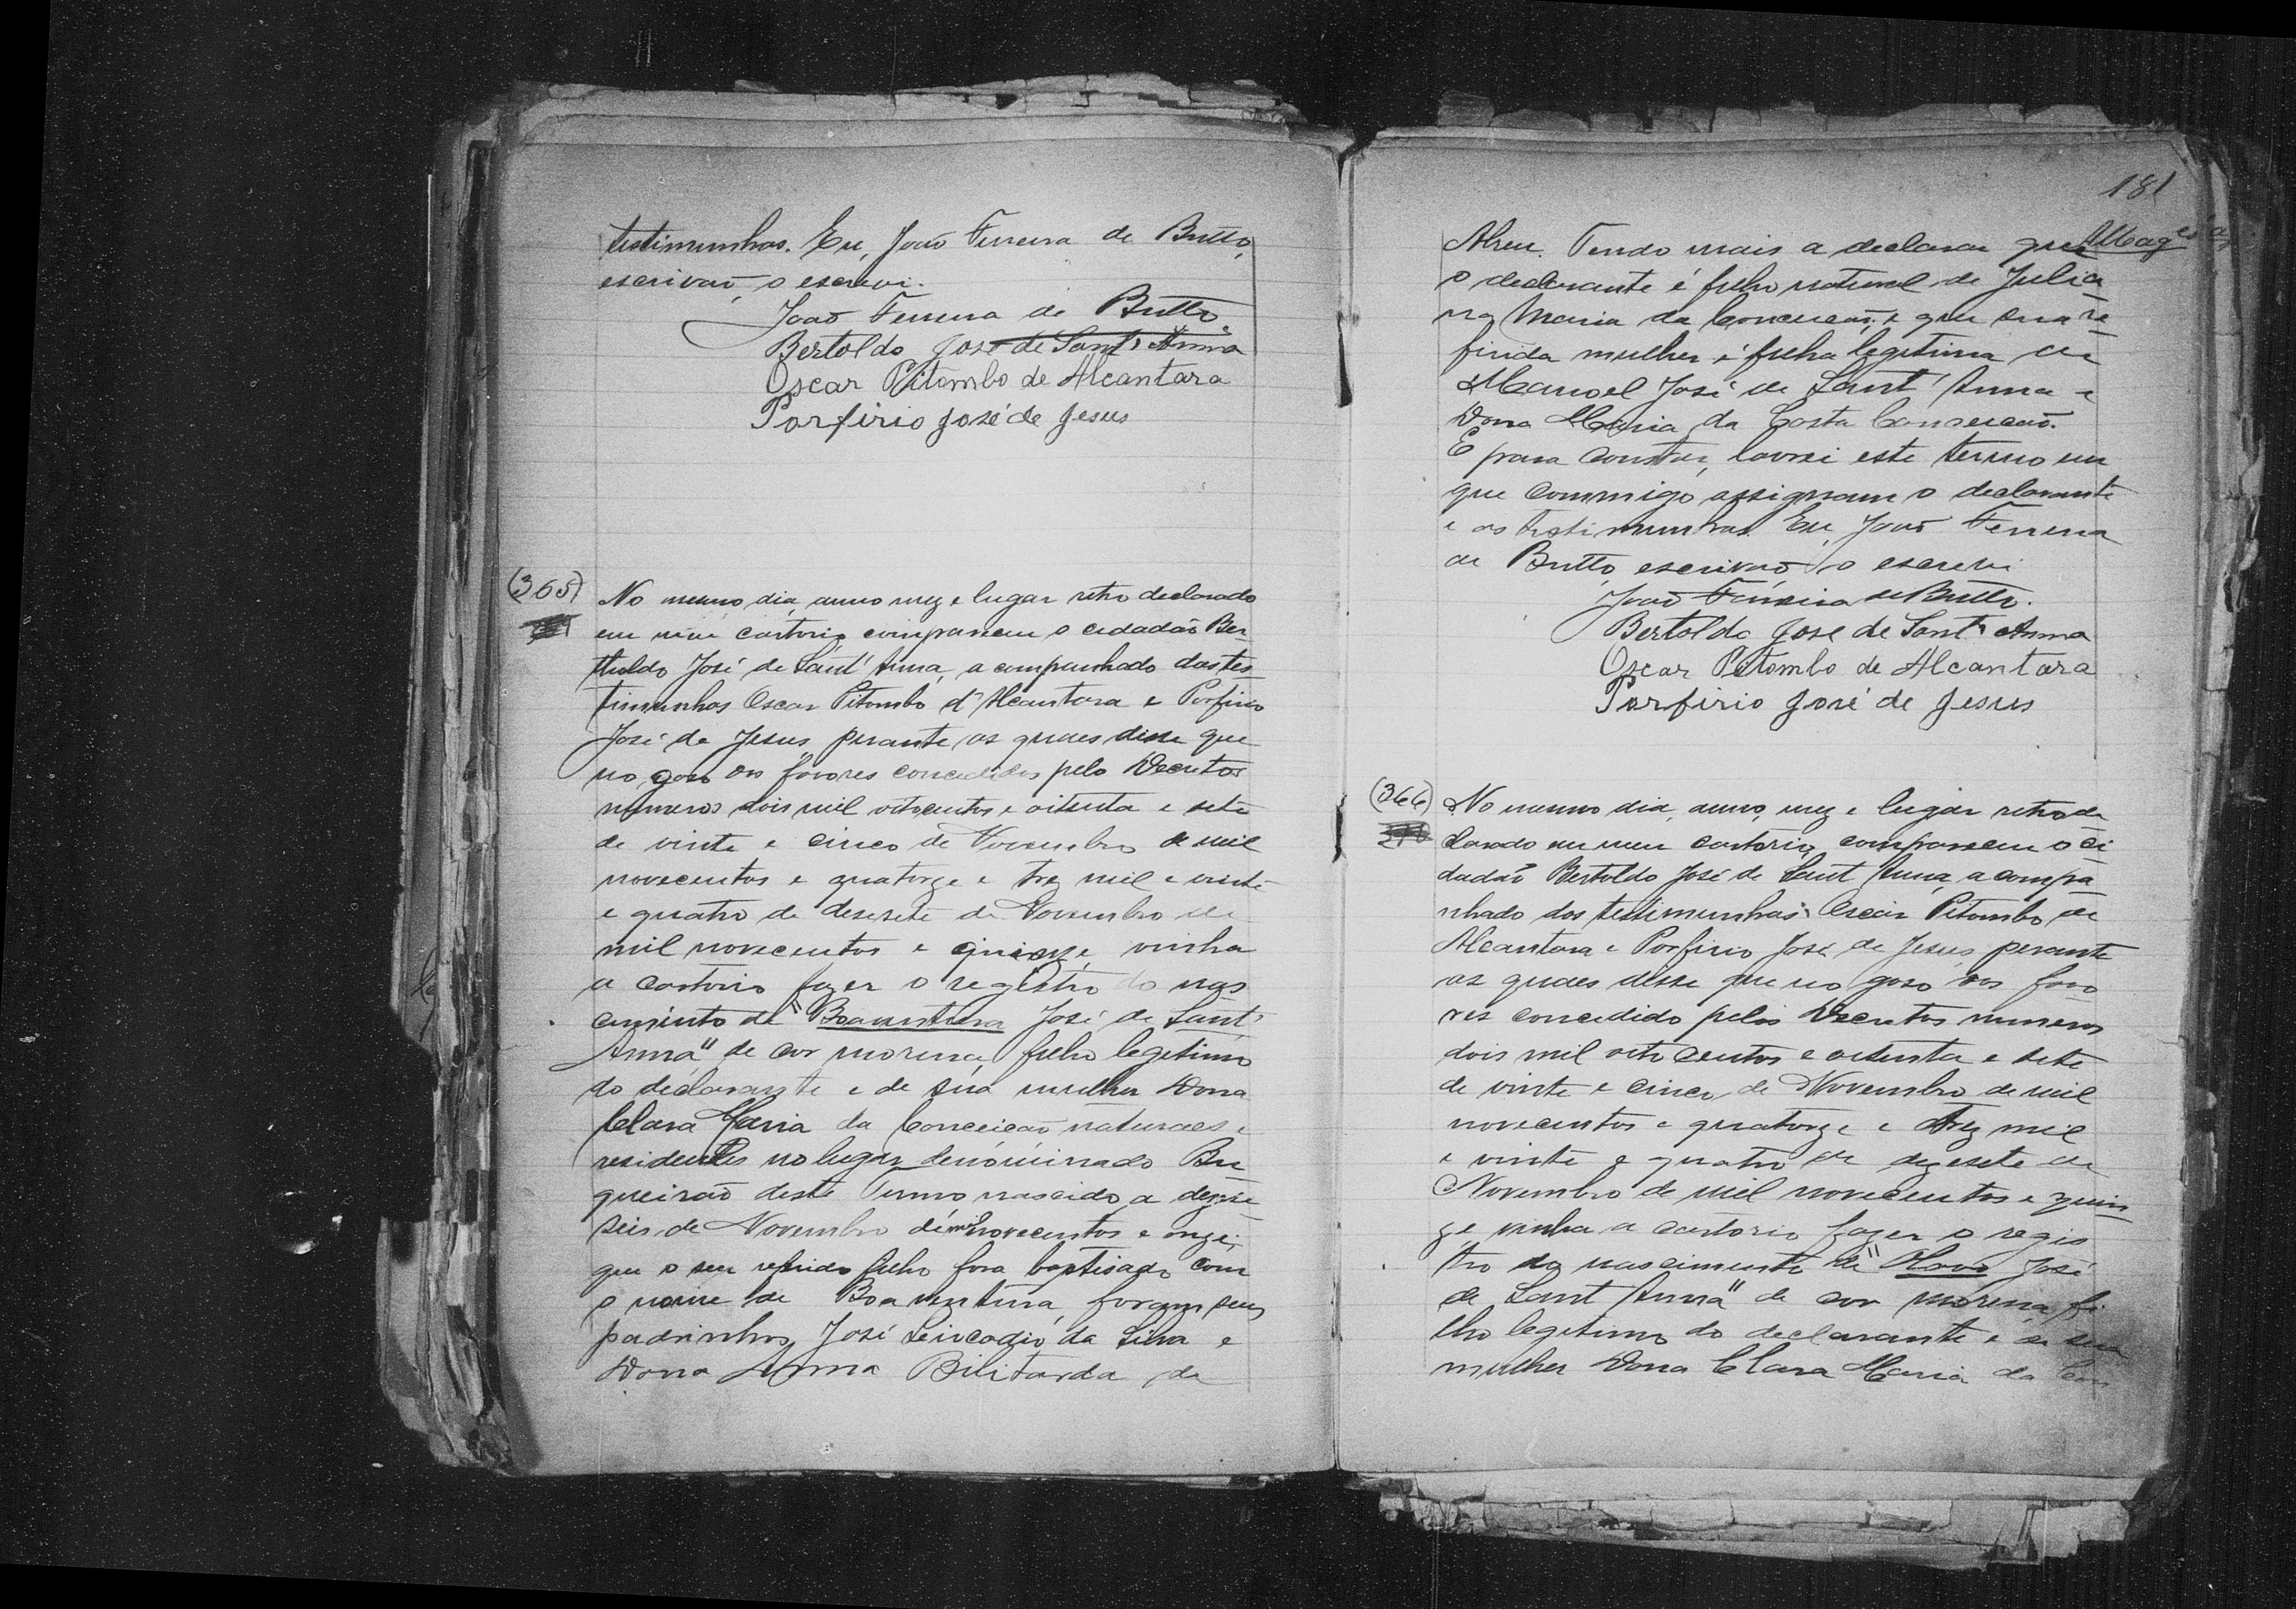 testimunhas. Eu, João Ferreira de Britto,
escrivão, o escrevi.
João Ferreira de Britto
Bertoldo José de Sant'Anna
Oscar Pitombo de Alcantara
Porfirio José de Jesus
(365)
No mesmo dia, anno mez e lugar retro declarado
em meu cartorio compareceu o cidadão Ber-
tholdo José de Sant'Anna, acompanhado das tes-
timunhas Oscar Pitombo d'Alcantara e Porfirio
José de Jesus perante as quaes disse que
no goso os favores concedidos pelo Decretos
numeros dois mil oitocentos e oitenta e sete
de vinte e cinco de Novembro de mil
novecentos e quatorze e trez mil e vinte
e quatro de desesete de Novembro de
mil novecentos e quinze, vinha
a cartorio fazer o registro do nas
cimento de "Boaventura José de Sant'
Anna" de cor morena, filho legitimo
do declarante e de sua mulher Dona
Clara Maria da Conceição naturaes e
residentes no lugar denominado Bu
queirão deste Termo nascido a deze
seis de Novembro de mil novecentos e onze;
que o seu referido filho fora baptisado com
o nome de Boaventura, foram seus
padrinhos José Leiocadio da Silva e
Dona Anna Bilitarda de
181
Abreu. Tendo mais a declarar que
o declarante é filho natural de Julia
na Maria da Conceição, e que sua re-
firida mulher é filha legitima de
Manoel José de Sant'Anna e
Dona Maria da Costa Conceição.
E para constar, lavrei este termo em
que commigo assignam o declarante
e as testimunhas. Eu, João Ferreira
de Britto, escrivão, o escrevi
João Ferreira de Britto.
Bertoldo José de Sant'Anna
Oscar Pitombo de Alcantara
Porfirio José de Jesus
(366)
No mesmo dia, anno, mez e lugar retro de
clarado em meu cartorio, compareceu o ci-
dadão Bertoldo José de Sant'Anna, acompa
nhado dos testimunhas Oscar Pitombo de
Alcantara e Porfirio José de Jesus, perante
as quaes disse que no goso os favo
res concedido pelos Decretos numeros
dois mil oito centos e oitenta e sete
de vinte e cinco de Novembro de mil
novecentos e quatorze e trez mil
e vinte e quatro de dezesete de
Novembro de mil novecentos e quin
ze vinha a cartorio fazer o regis
tro do nascimento de José
de Sant'Anna" de cor morena, fi
lho legitimo do declarante e de sua
mulher Dona Clara Maria da Con